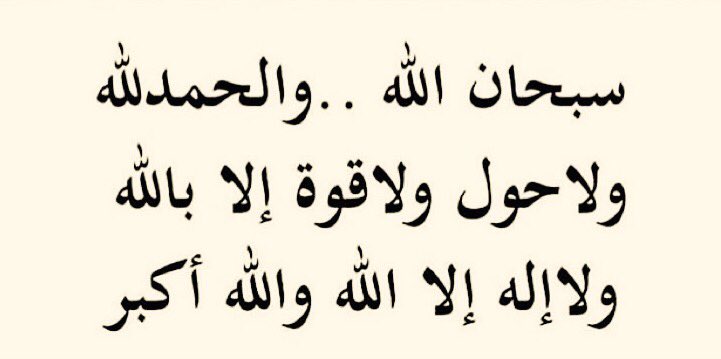 سبحان الله ..والحمدلله
ولاحول ولاقوة إلا بالله
ولاإله إلا الله والله أكبر